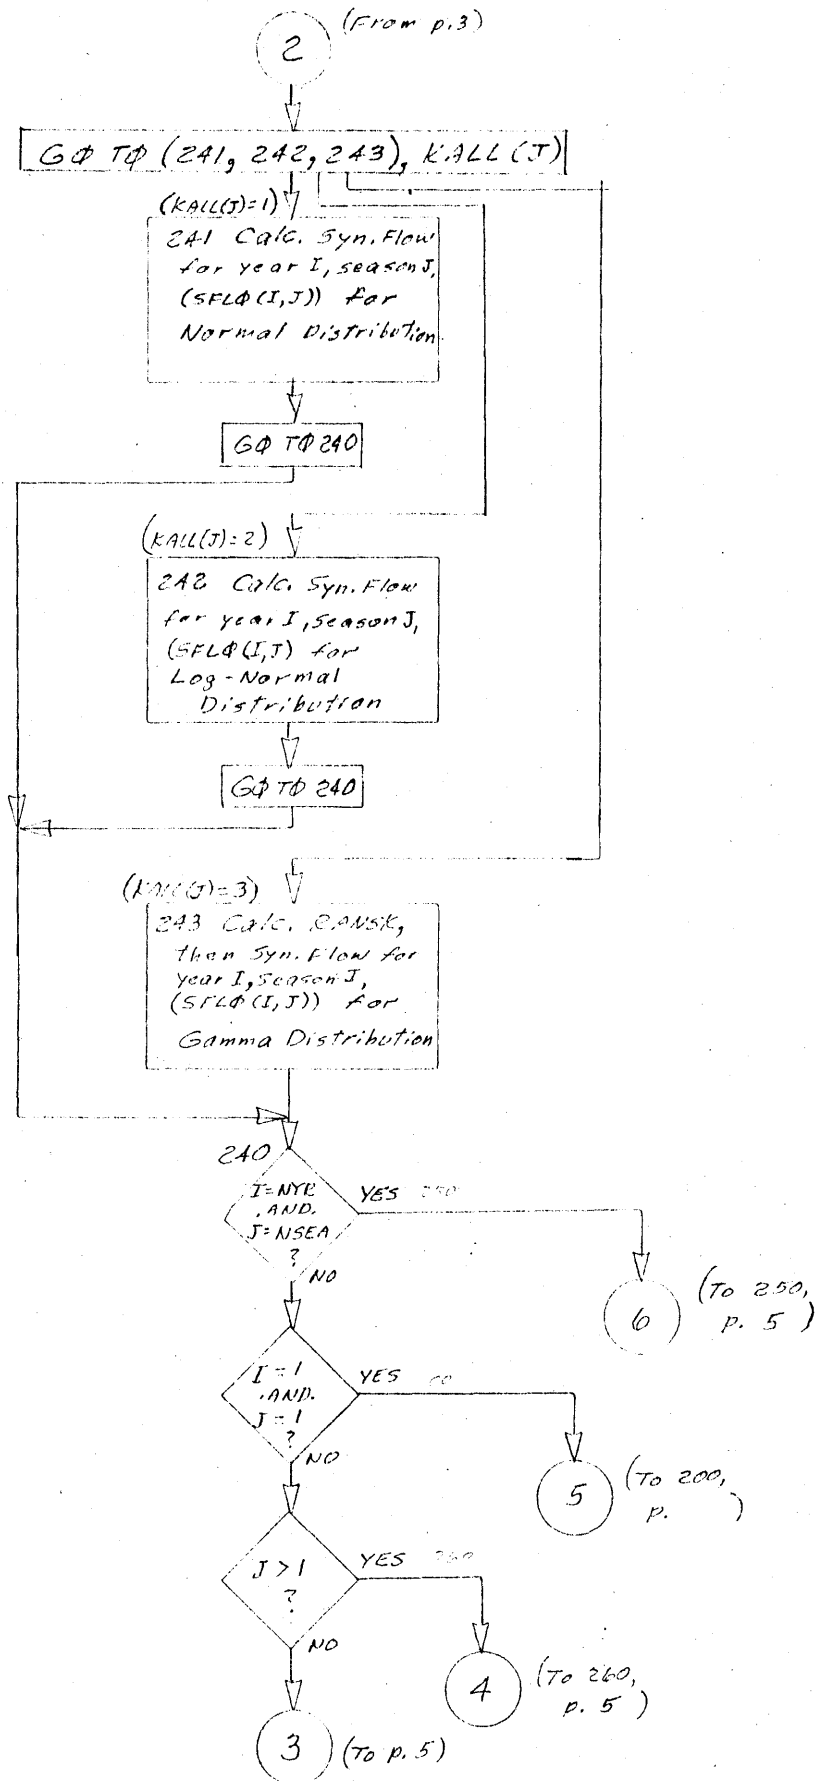 2 (From p.3)
GØ TØ (241, 242, 243), KALL(J)
(KALL(J)=1)
241 Calc. Syn. Flow
for year I, season J,
(SFLØ(I,J)) for
Normal Distribution
GØ TØ 240
(KALL(J)=2)
242 Calc. Syn. Flow
for year I, season J,
(SFLØ(I,J) for
Log-Normal
Distribution
GØ TØ 240
(KALL(J)=3)
243 Calc. RANSK,
then Syn. Flow for
year I, season J,
(SFLØ(I,J)) for
Gamma Distribution
240
I=NYR
.AND.
J=NSEA
?
YES 250
NO
6 (To 250,
p. 5)
I=1
.AND.
J=1
?
YES
NO
5 (To 200,
p. )
J>1
?
YES 260
NO
4 (To 260,
p. 5)
3 (To p. 5)